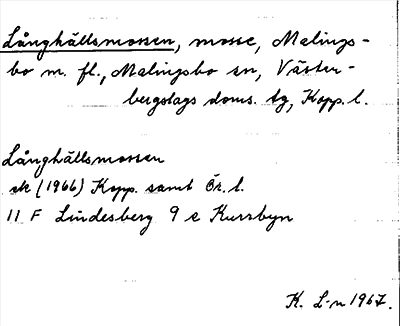 Långhällsmossen, mosse, Malings-
bo m. fl., Malingsbo sn, Väster-
bergslags doms. tg, Kopp. l.
Långhällsmossen
ek (1966) Kopp. samt Ör. l.
11 F Lindesberg 9 e Kursbyn
K. L-n 1967.